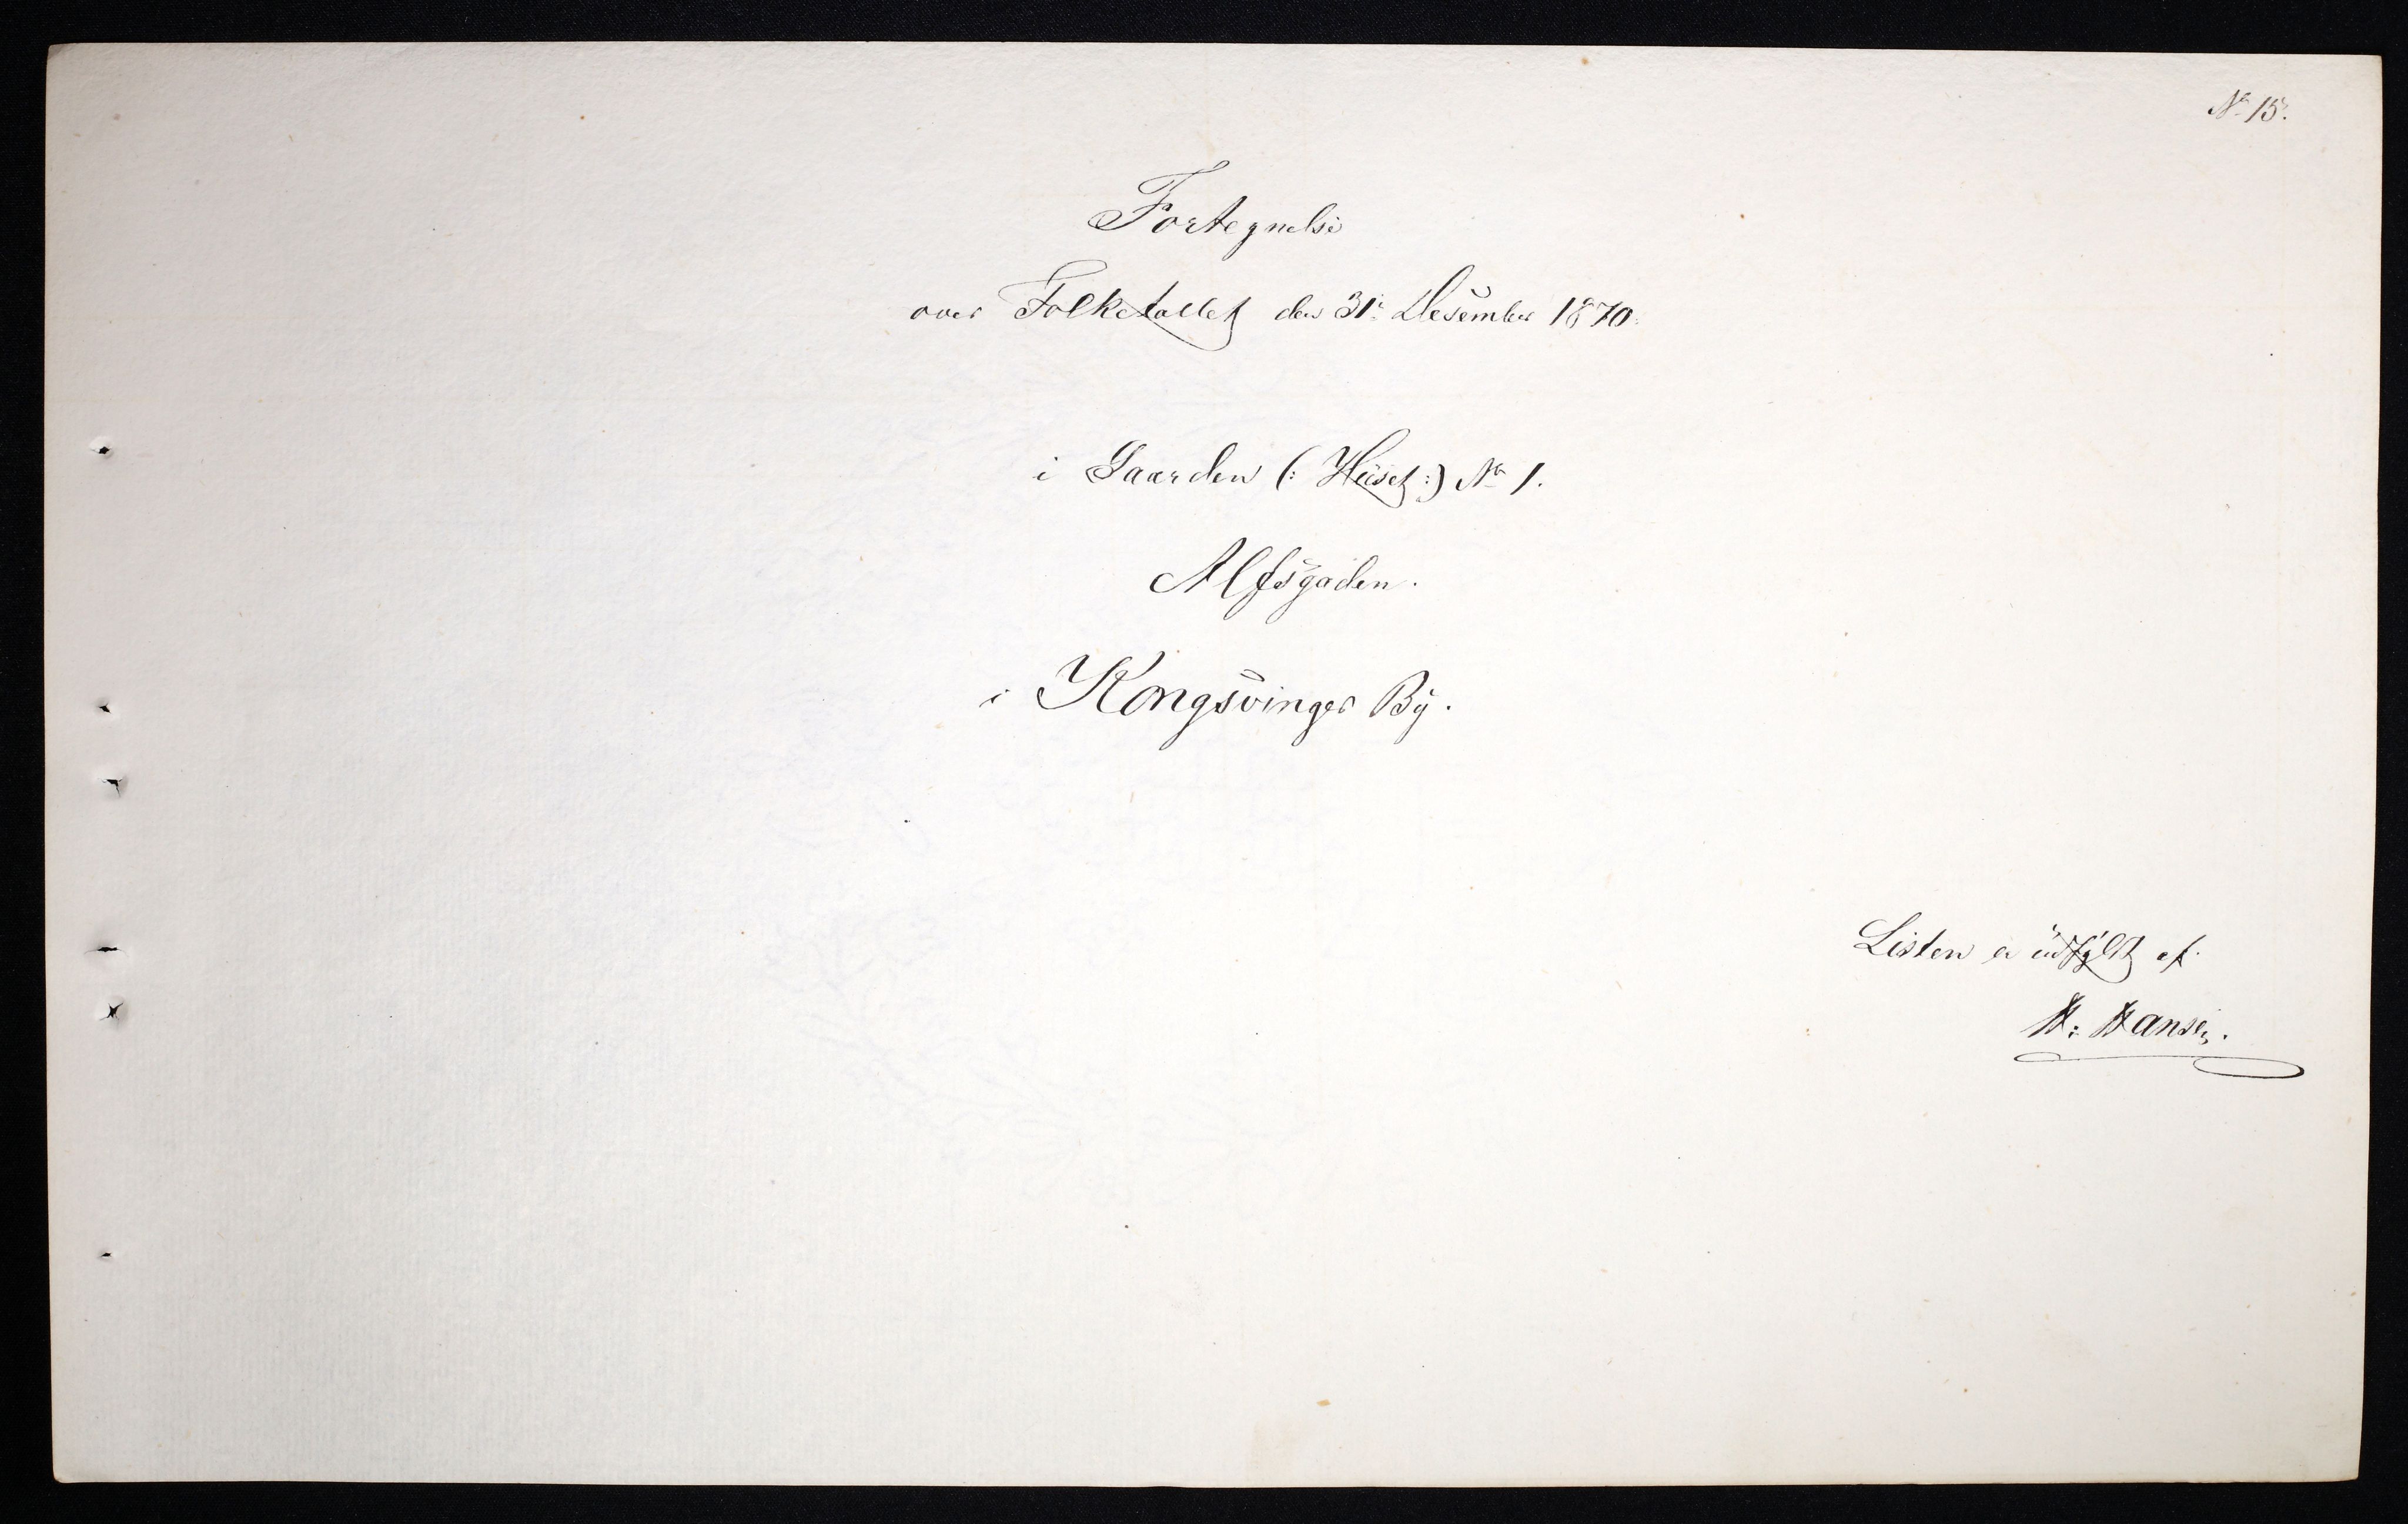 No 15.
Fortegnelse
over Folketallet den 31te Desember 1870
i Gaarden (: Huset :) No 1.
Alfsgaden.
i Kongsvinger By.
Listen er udfyldt af
H: Hansen.